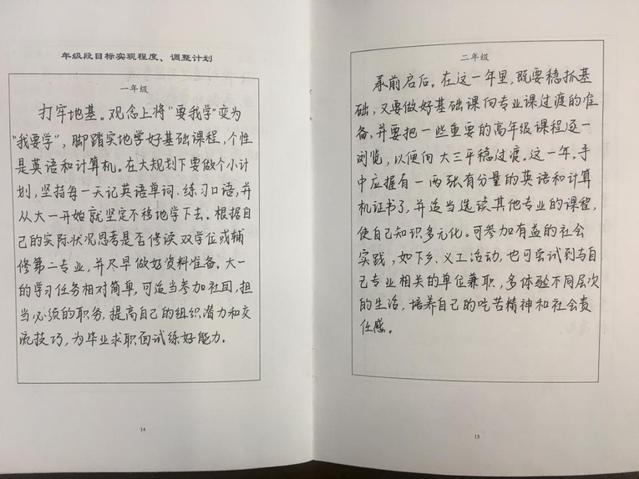 年级段目标实现程度、调整计划
一年级
打牢地基。观念上将“要我学”变为
“我要学”,脚踏实地学好基础课程,个性
是英语和计算机。在大规划下要做个小计
划,坚持每一天记英语单词、练习口语,并
从大一开始就坚定不移地学下去。根据自
己的实际状况思考是否修读双学位或辅
修第二专业,并尽早做好资料准备。大一
的学习任务相对简单,可适当参加社团,担
当必须的职务,提高自己的组织潜力和交
流技巧,为毕业求职面试练好能力。
14
二年级
承前启后。在这一年里,既要稳抓基
础,又要做好基础课向专业课过渡的准
备,并要把一些重要的高年级课程逐一
浏览,以便向大三平稳过渡。这一年,手
中应握有一两张有分量的英语和计算
机证书了,并适当选读其他专业的课程,
使自己知识多元化。可参加有益的社会
实践,如下乡、义工活动,也可尝试到与自
己专业相关的单位兼职,多体验不同层次
的生活,培养自己的吃苦精神和社会责
任感。
15